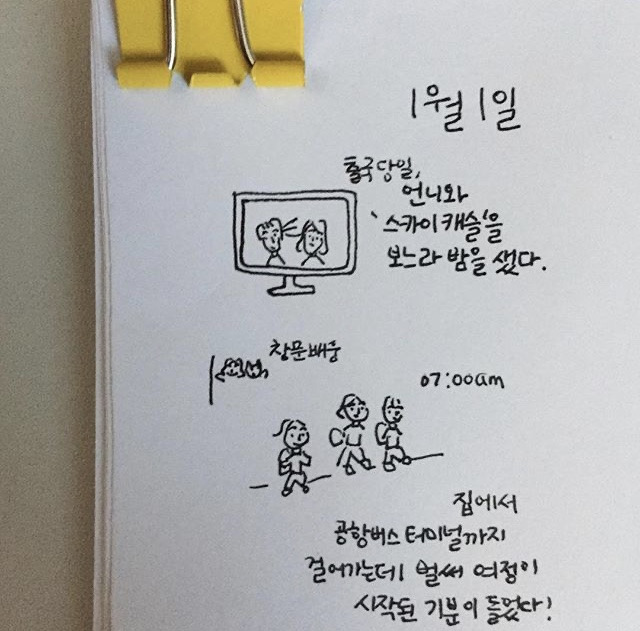 1월 1일
출국 당일,
언니와
'스카이 캐슬'을
보느라 밤을 샜다.
창문배웅
07:00am
집에서
공항버스 터미널까지
걸어가는데 벌써 여정이
시작된 기분이 들었다!